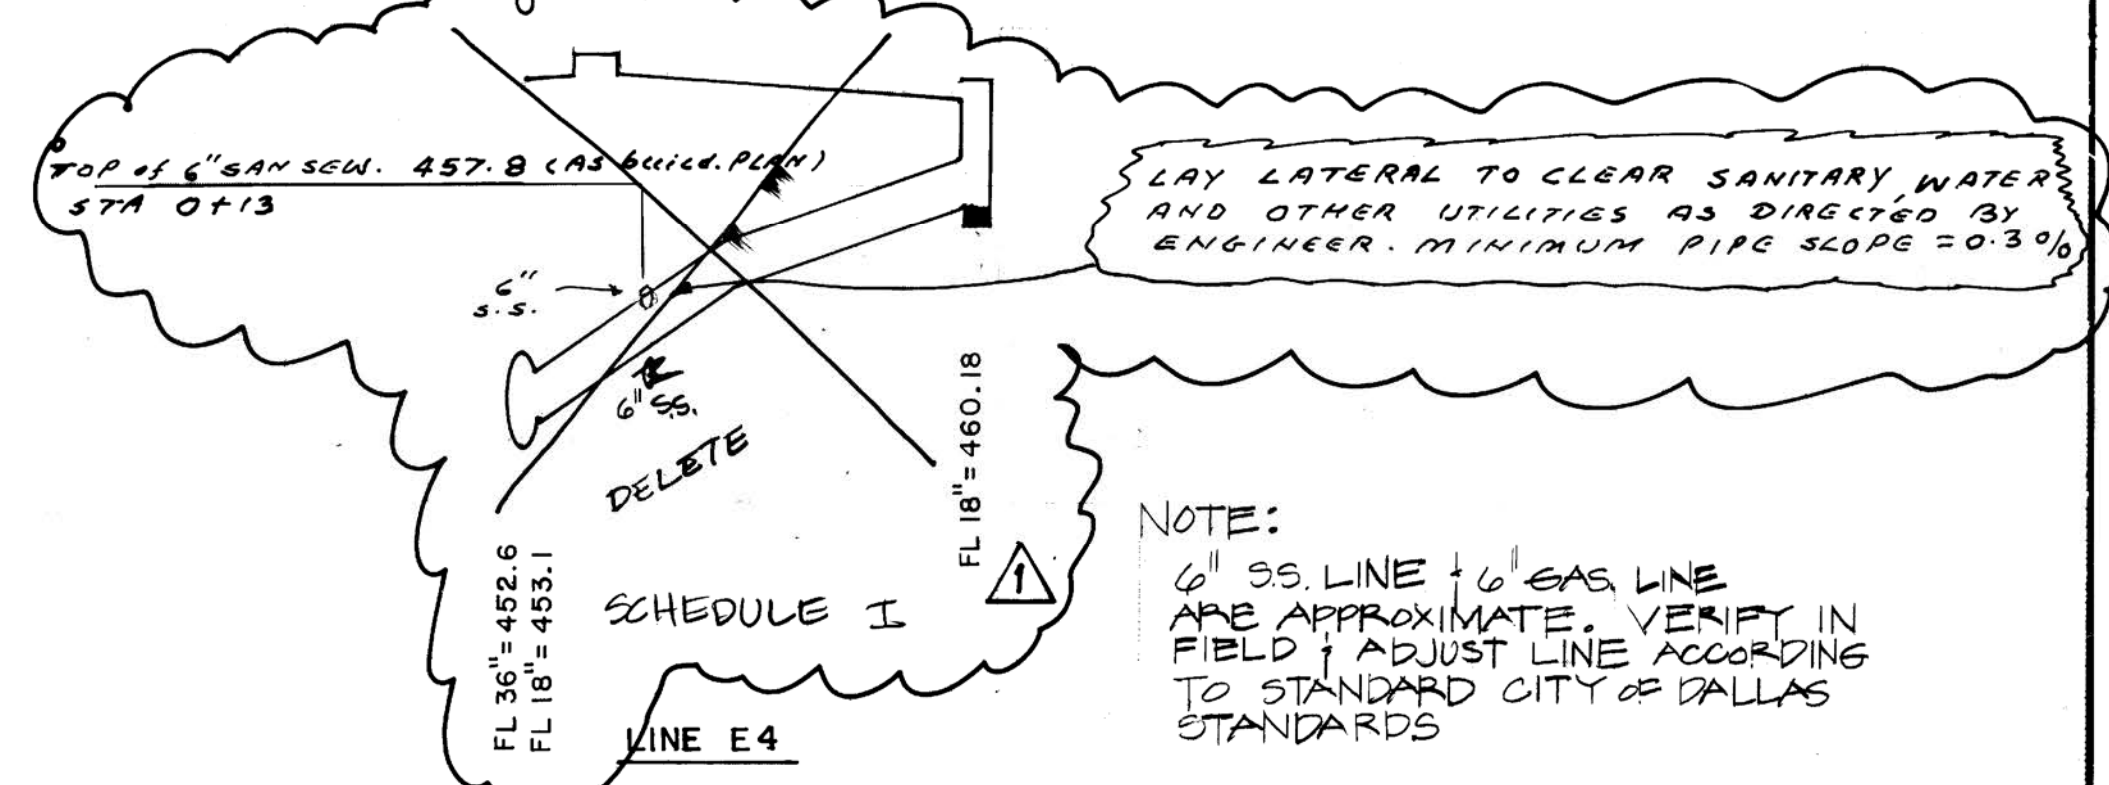 TOP of 6" SAN SEW. 457.8 (AS build. PLAN)
STA 0+13
LAY LATERAL TO CLEAR SANITARY, WATER
AND OTHER UTILITIES AS DIRECTED BY
ENGINEER. MINIMUM PIPE SLOPE = 0.3%
6"
S.S.
6" S.S.
DELETE
FL 36" = 452.6
FL 18" = 453.1
FL 18" = 460.18
1
SCHEDULE I
LINE E4
NOTE:
6" S.S. LINE & 6" GAS LINE
ARE APPROXIMATE. VERIFY IN
FIELD & ADJUST LINE ACCORDING
TO STANDARD CITY OF DALLAS
STANDARDS